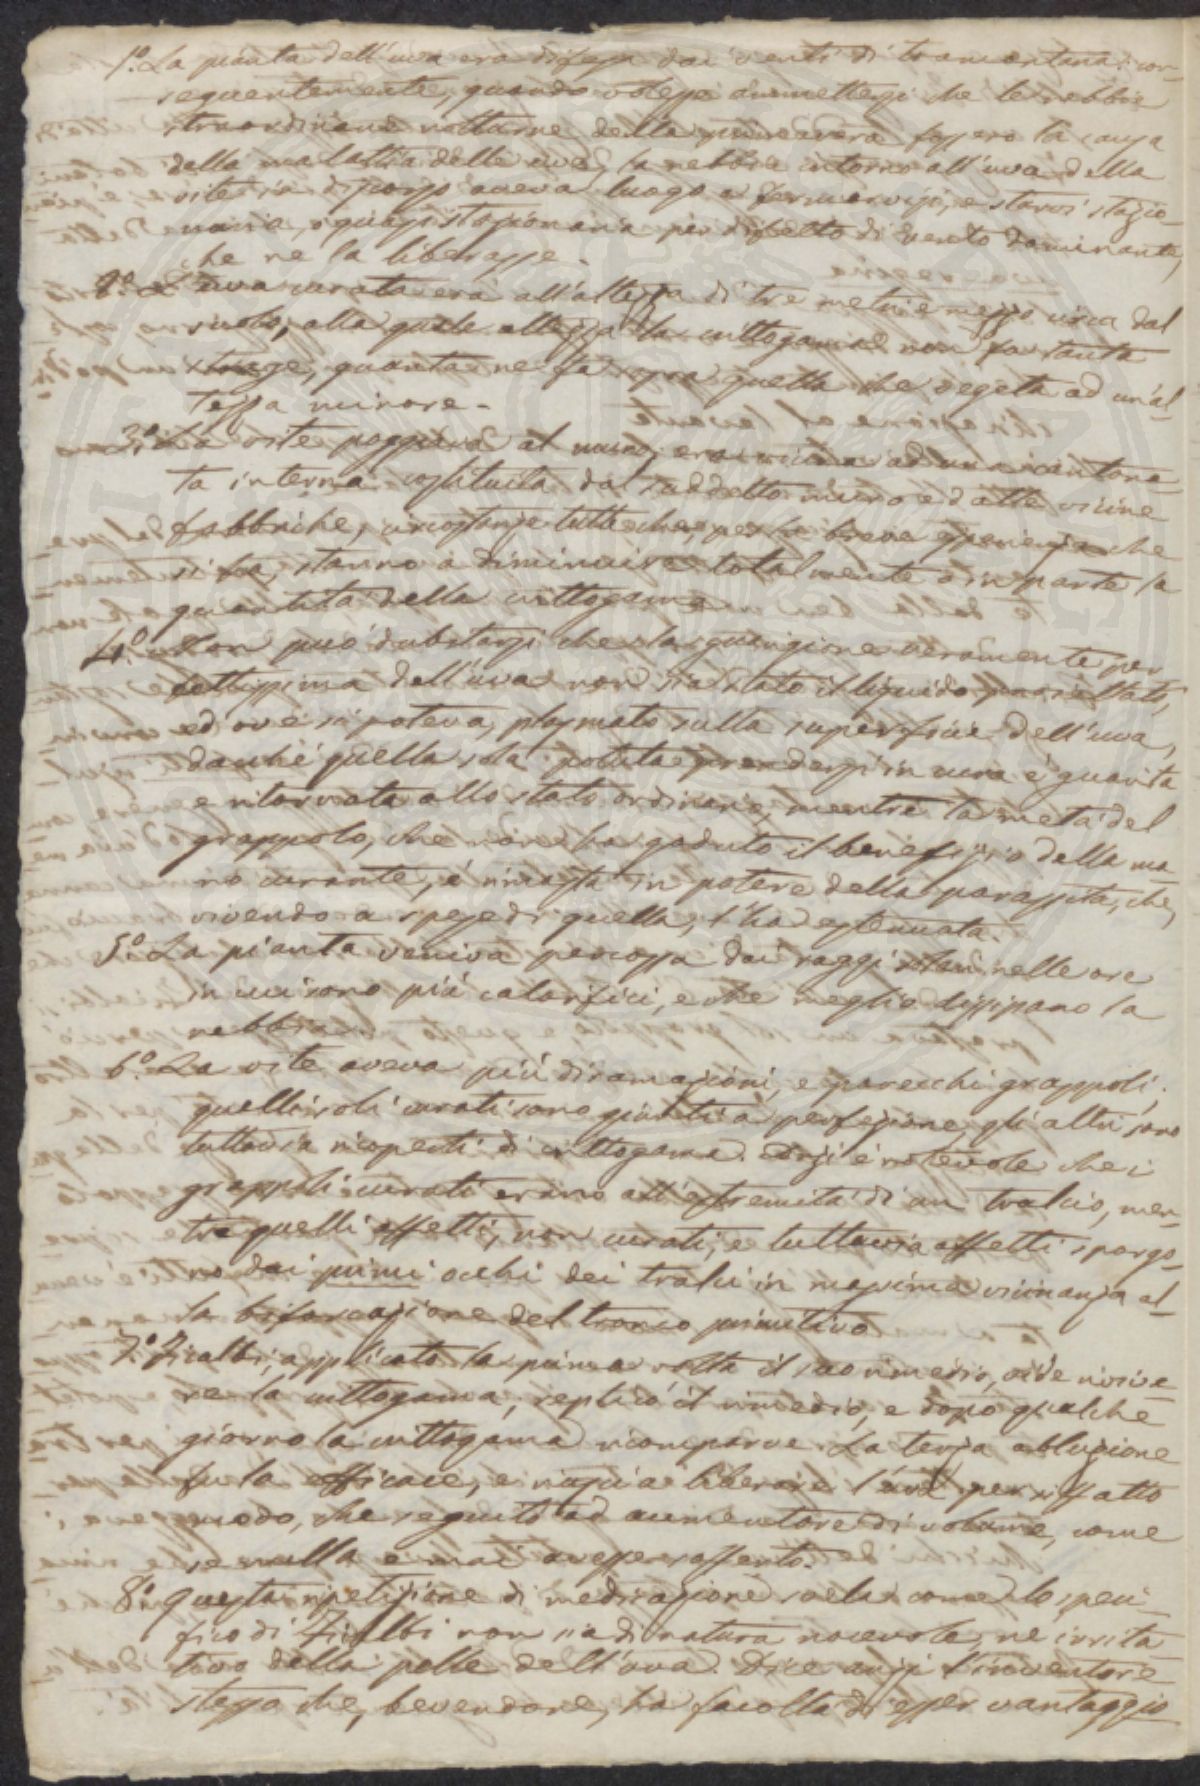 1.º La pianta dell'uva era difesa dai venti di tramontana: con-
seguentemente, quando volesse ammettersi che le nebbie
straordinarie notturne della primavera fossero la causa
della malattia delle uve, la nebbia intorno all'uva della
vite in discorso aveva luogo a fermarvisi, e starvi stazio-
naria, o quasi stazionaria per difetto di vento dominante,
che ne la liberasse.
2.º L'uva curata era all'altezza di tre metri e mezzo circa dal
suolo, alla quale altezza la crittogama non fa tanta
strage, quanta ne fa sopra quella che vegeta ad un'al-
tezza minore.
3.º La vite poggiava al muro, era vicina ad una cantona-
ta interna costituita dal suddetto muro e dalle vicine
fabbriche, circostanze tutte che, per la breve esperienza che
si ha, stanno a diminuire totalmente o in parte la
quantità della crittogama.
4.º Non può dubitarsi che la guarigione veramente per
fettissima dell'uva non sia stato il liquido
ed ove si poteva, plasmato sulla superficie dell'uva,
dacchè quella sola potuta prendersi in cura è guarita
e ritornata allo stato ordinario, mentre la metà del
grappolo, che non ha goduto il benefizio della ma-
no curante, è rimasta in potere della parassita, che,
vivendo a spese di quella, l'ha estenuata.
5.º La pianta veniva percossa dai raggi solari nelle ore
in cui sono più calorifici, e che meglio dissipano la
nebbia.
6.º La vite aveva più diramazioni, e parecchi grappoli;
quelli soli curati sono giunti a perfezione, gli altri sono
tuttavia ricoperti di crittogama. Anzi è notevole che i
grappoli curati erano all'estremità di un tralcio, men-
tre quelli affetti, non curati, e tuttavia affetti sporgo-
no dai primi occhi dei tralci in massima vicinanza al-
la biforcazione del tronco primitivo
7.º Zicalbi, applicato la prima volta il suo rimedio, vide rivive-
re la crittogama, replicò il rimedio, e dopo qualche
giorno la crittogama ricomparve. La terza abluzione
fu la efficace, e riuscì a liberare l'uva per siffatto
modo, che seguitò ad aumentare di volume, come
se nulla e mai avesse sofferto.
8.º Questa ripetizione di medicazione svela come lo speci-
fico di Zicalbi non sia di natura nocevole, nè irrita
tivo della pelle dell'uva. Dice anzi l'inventore
stesso che, bevendone, ha facoltà di esser vantaggio